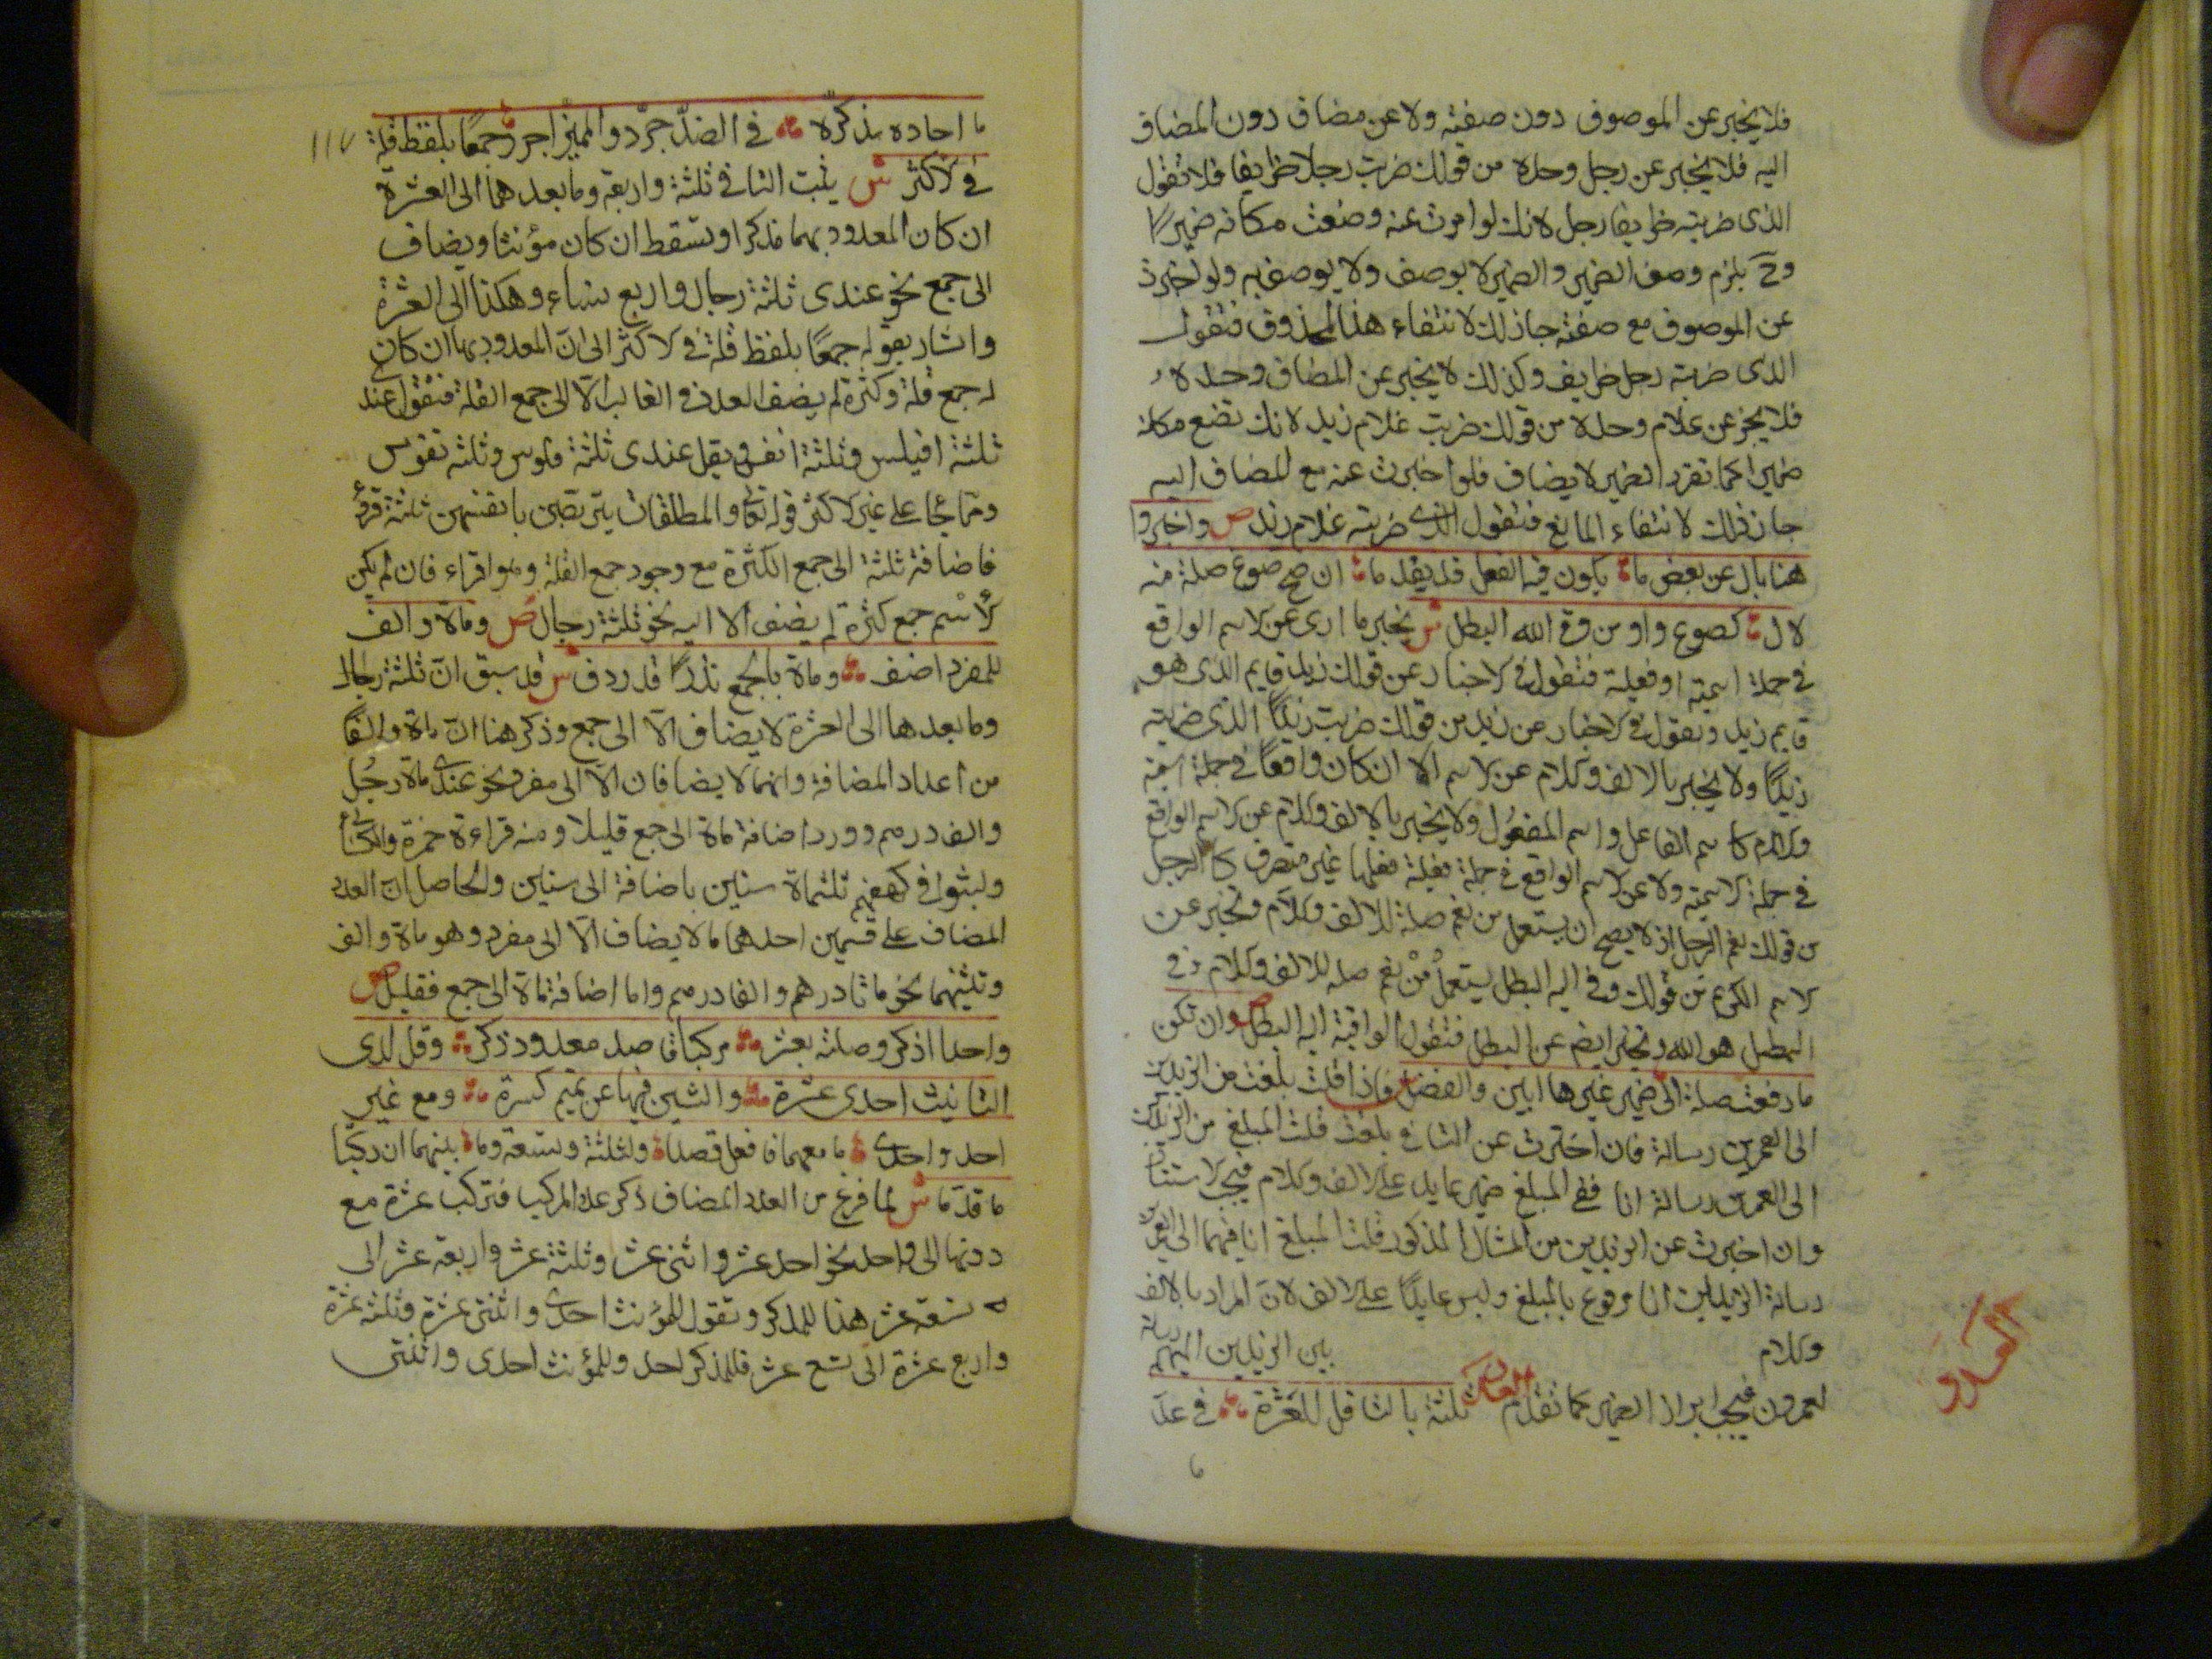 فلا يخبر عن الموصوف دون صفته ولا عن مضاف دون المضاف
اليه فلا يخبر عن رجل وحده من قولك ضربت رجلا ظريفا فلا تقول
الذى ضربته ظريفا رجل لانك لو اخبرت عنه وضعت مكانه ضميرا
وح يلزم وصف الضمير والضمير لا يوصف ولا يوصف به ولو اخبرت
عن الموصوف مع صفته جاز ذلك لانتفاء هذا المحذوق فتقول
الذى ضربته رجل ظريف وكذلك لا يخبر عن المضاف وحده
فلا يخبر عن غلام وحده من قولك ضربت غلام زيد لانك تضع مكانه
ضميرا كما تقرر والضمير لا يضاف فلو اخبرت عنه مع المضاف اليه
جاز ذلك لانتفاء المانع فتقول الذى ضربته غلام زيد ص واخبروا
هنا بال عن بعض ما يكون فيه الفعل قد يقدما ان صح صوغ صلة منه
لال كصوغ واو من وقى الله البطل ش يخبر ما ارى عن الاسم الواقع
فى جملة اسمية او فعلية فتقول فى الاخبار عن قولك زيد قايم الذى هو
قايم زيد وتقول فى الاخبار عن زيد من قولك ضربت زيدًا الذى ضربته
زيدًا ولا يخبر بالالف والام عن الاسم الا ان كان واقعًا فى جملة
والام كاسم الفاعل واسم المفعول ولا يخبر بالالف والام عن الاسم الواقع
فى جملة الاسمية ولا عن الاسم الواقع فى جملة فعلية فعلها غير متصرف كالرجل
من قولك نعم الرجل اذ لا يصح ان يستعمل من نعم صلة للالف والام وتخبر عن
الاسم الكريم من قولك وقى اله البطل يستعمل من نعم صله للالف والام
البطل هو الله وتخبر ايضم عن البطل فتقول الواقية اله البطل ص وان تكن
ما رفعت صلة ال ضمير غيرها ابين وانفصل فاذا قلت بلغت من الزيدين
الى العمرين رسالة فان اخبرت عن التا فى بلغت قلت المبلغ من الزيدين
الى العمرين رسالة انا ففى المبلغ ضمير عايد على الالف والام فيجب الاستتار
وان اخبرت عن الزيدين من المثال المذكور قلت المبلغ انا منهما الى العمرين
رسالة الزيدان انا مرفوع بالمبلغ وليس عايدًا على الالف لان المراد بالالف
والام
بين الزيدين المبلغ
العمرون فيجب ابراز الضمير كما تقدم العدد ثلثة بالتا قل للعشرة فى عد
العدد
١١٧
ما احاده مذكرة فى الضد جرد والمميز اجرر جمعًا بلفظ قلة
فى الاكثر ش يثبت التا فى ثلثة واربعة وما بعدهما الى العشرة
ان كان المعدود بهما مذكرا وتسقط ان كان مؤنثا ويضاف
الى جمع نحو عندى ثلثة رجال واربع نساء وهكذا الى العشرة
واشار بقوله جمعًا بلفظ قلة فى الاكثر الى ان المعدود بها ان كان
له جمع قلة وكثرة لم يضف العدد فى الغالب الا الى جمع القلة فتقول عندى
ثلثة افيلس وثلثة انفس ويقل عندى ثلثة فلوس وثلثه نفوس
ومما جا على غير الاكثر قوله تعا والمطلقات يتربصن بانفسهن ثلثة قروء
فاضافة ثلثة الى جمع الكثرة مع وجود جمع القلة وهو اقراء فان لم يكن
للاسم جمع كثرة لم يضف الا اليه نحو ثلثة رجال ص وماة والف
للمفرد اضف وماة بالجمع نذرًا قد ردف ش قد سبق ان ثلثة رجال
وما بعدها الى العشرة لا يضاف الا الى جمع وذكر هنا ان ماة والفًا
من اعداد المضافة وانهما لا يضافان الا الى مفرد نحو عندى ماة رجل
والف درهم وورد اضافة ماة الى جمع قليلا ومنه قراءة حمزة والكسائى
ولبثوا فى كهفهم ثلثماة سناين باضافة الى سناين والحاصل ان العدد
المضاف على قسمين احدهما ما لا يضاف الا الى مفرد وهو ماة والف
وتثنيتهما نحو ماتا درهم والفا درهم واما اضافة ماة الى جمع فقليل ص
واحدا اذكر وصلنه بعشر مركبا قاصد معدود ذكر وقل لدى
التانيث احدى عشرة والشين فيها عن تميم كسرة ومع غير
احد واحدى ما معهما فافعل قصدا ولثلثة وتسعة وما بينهما ان ركبا
ما قدما ش لما فرغ من العدد المضاف ذكر عدد المركب فتركب عشرة مع
دونها الى واحد نحو احد عشر واثنى عشر وثلثة عشر واربعة عشر الى
تسعة عشر هذا للمذكر وتقول للمؤنث احدى واثنتى عشرة وثلثة عشرة
واربع عشرة الى تسع عشر فللمذكر احد وللمؤنث احدى واثنتى